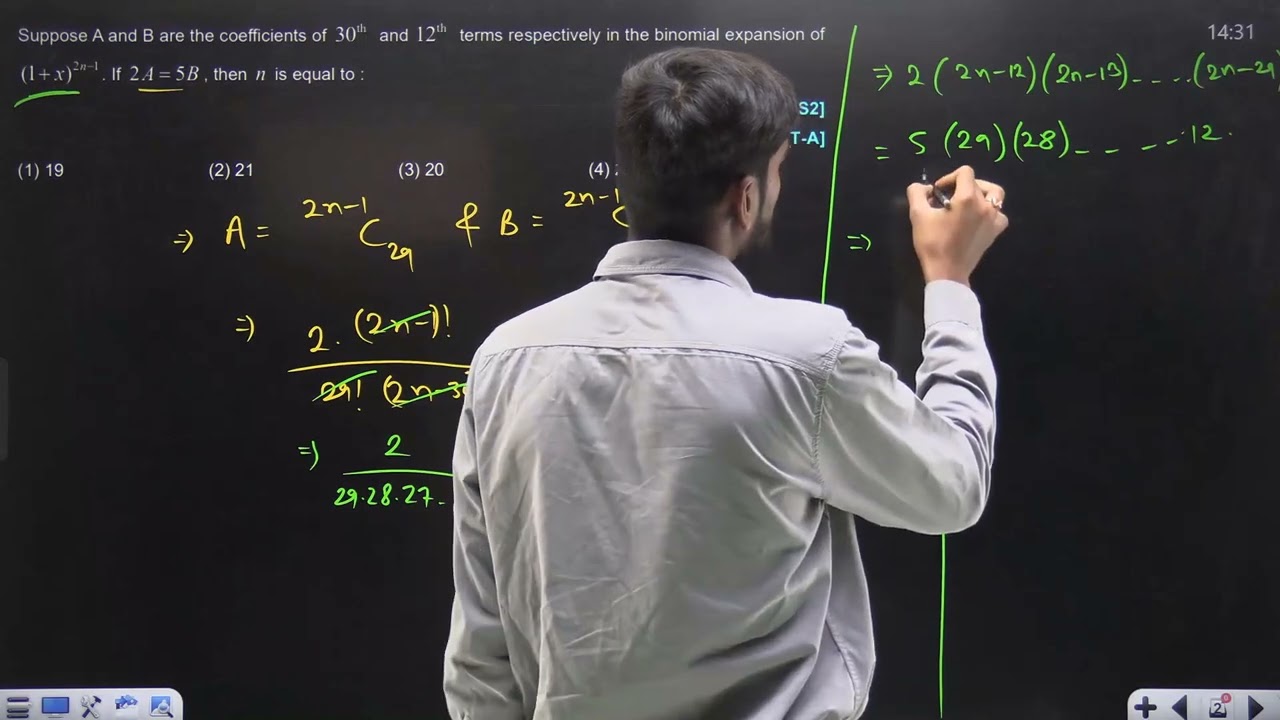 Suppose A and B are the coefficients of 30th and 12th terms respectively in the binomial expansion of
(1+x)^{2n−1}. If 2A = 5B, then n is equal to :
S2]
T-A]
(1) 19 (2) 21 (3) 20 (4)
⇒ A = ^{2n−1}C_{29} & B = ^{2n−1}C
⇒ 2.(2n−1)!
29! (2n−30
⇒ 2
29.28.27.
14:31
⇒ 2(2n−12)(2n−13)-....(2n−29)
= 5(29)(28)-----12.
⇒
2